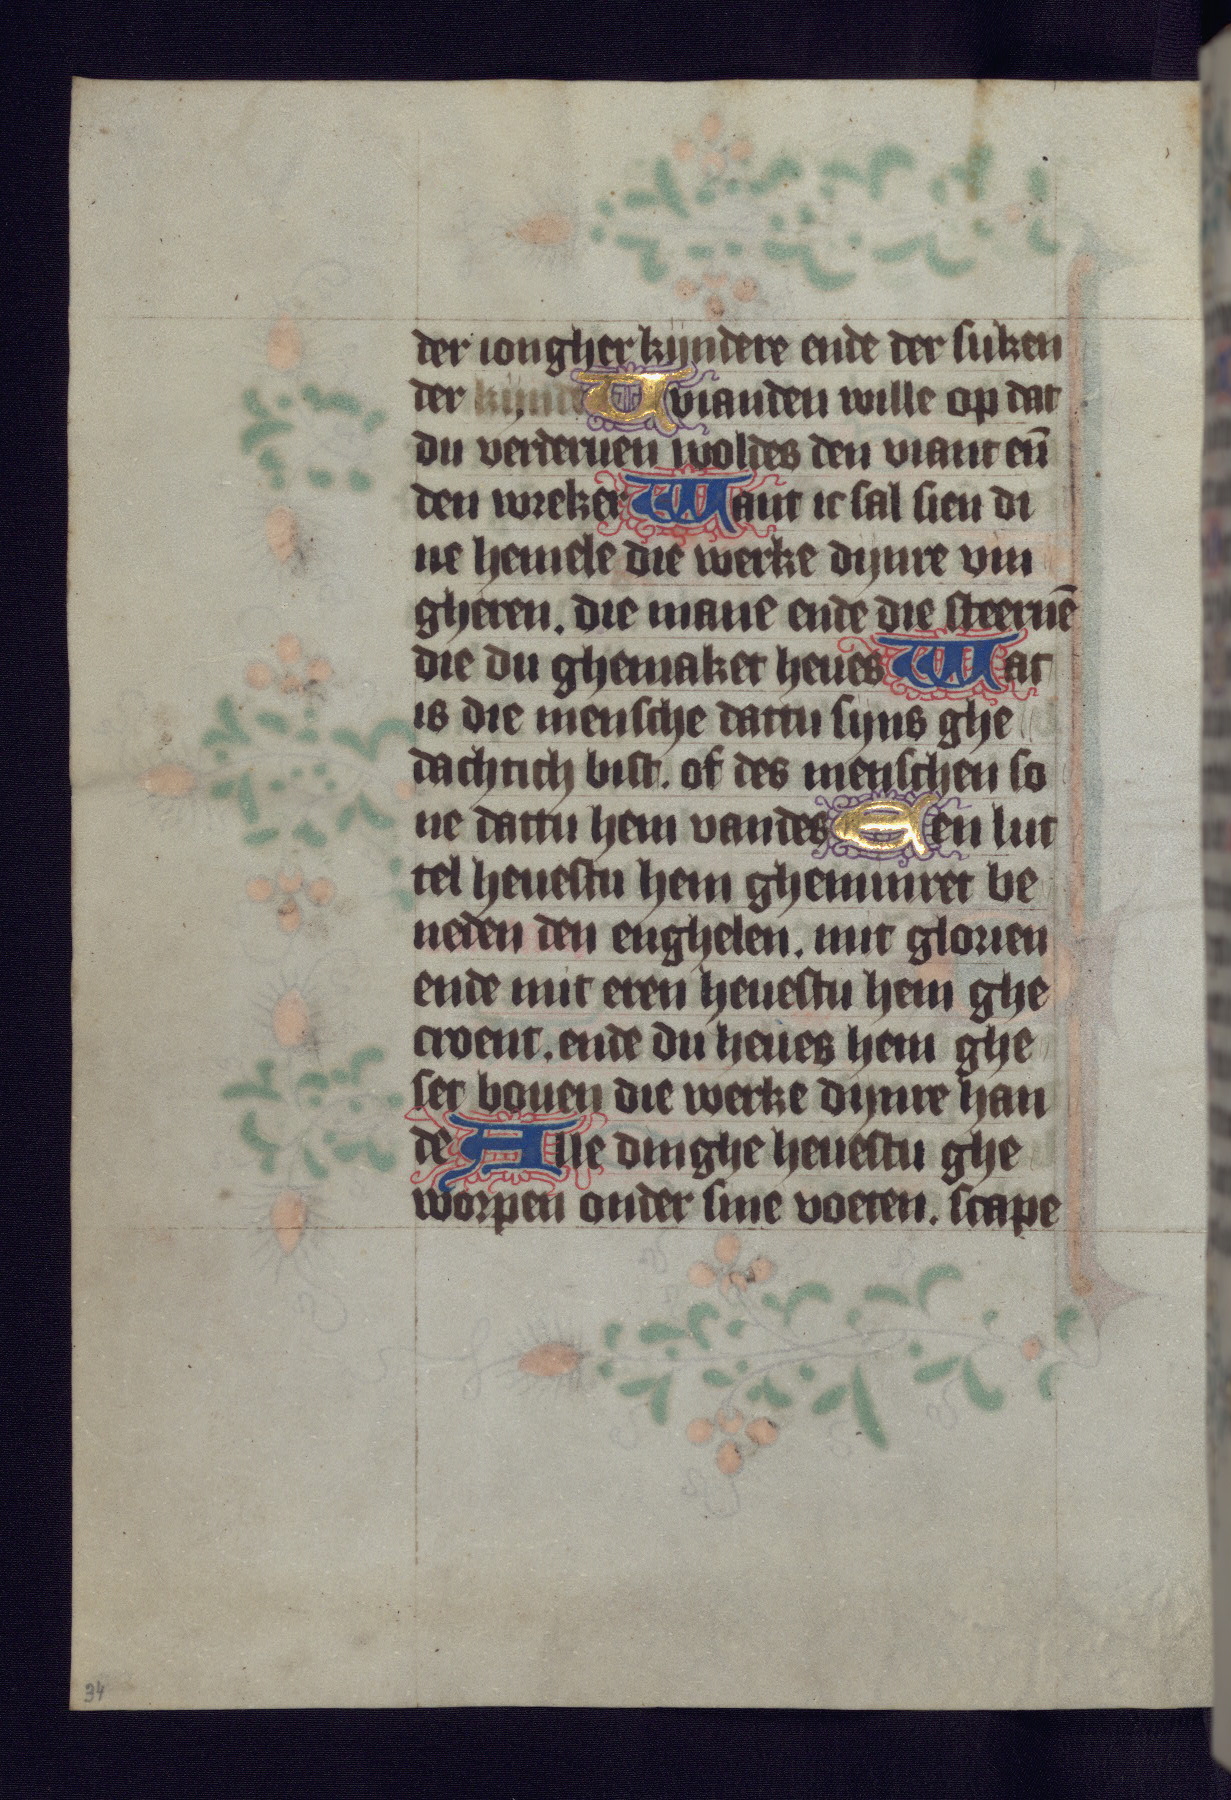 der iongher kijndere ende der suken
der kijnde U vianden wille op dat
du verderuen woldes den viant en̄
den wreker Want ic sal sien di
ne hemele die werke dijnre vin
gheren. die mane ende die steernē
die du ghemaket heues Wat
is die mensche dattu sijns ghe
dachtich bist. of des menschen so
ne dattu hem vandes Een lut
tel heuestu hem gheminret be
neden den enghelen. mit glorien
ende mit eren heuestu hem ghe
croent. ende du heues hem ghe
set bouen die werke dijnre han
de Alle dinghe heuestu ghe
worpen onder sine voeten. scape
34